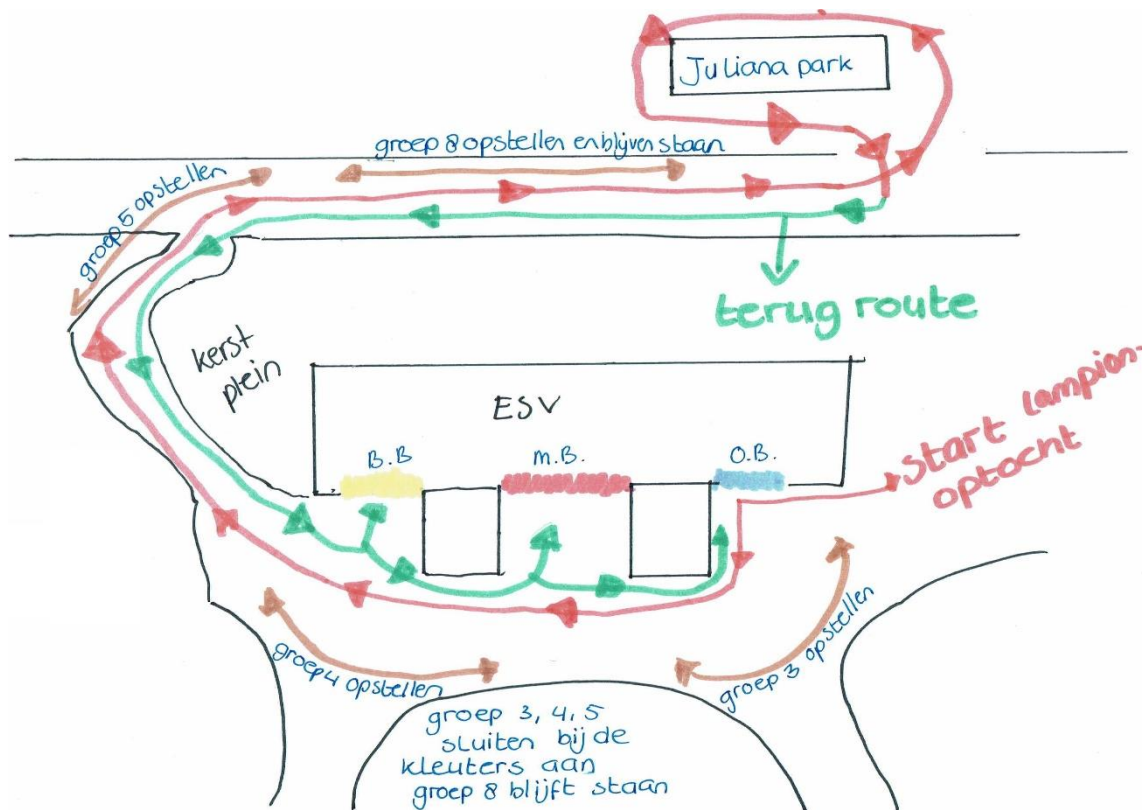 Juliana park
groep 8 opstellen en blijven staan
groep 5 opstellen
terug route
kerst
plein
ESV
B.B
M.B.
O.B.
start lampion-
optocht
groep 4 opstellen
groep 3 opstellen
groep 3, 4, 5
sluiten bij de
kleuters aan
groep 8 blijft staan